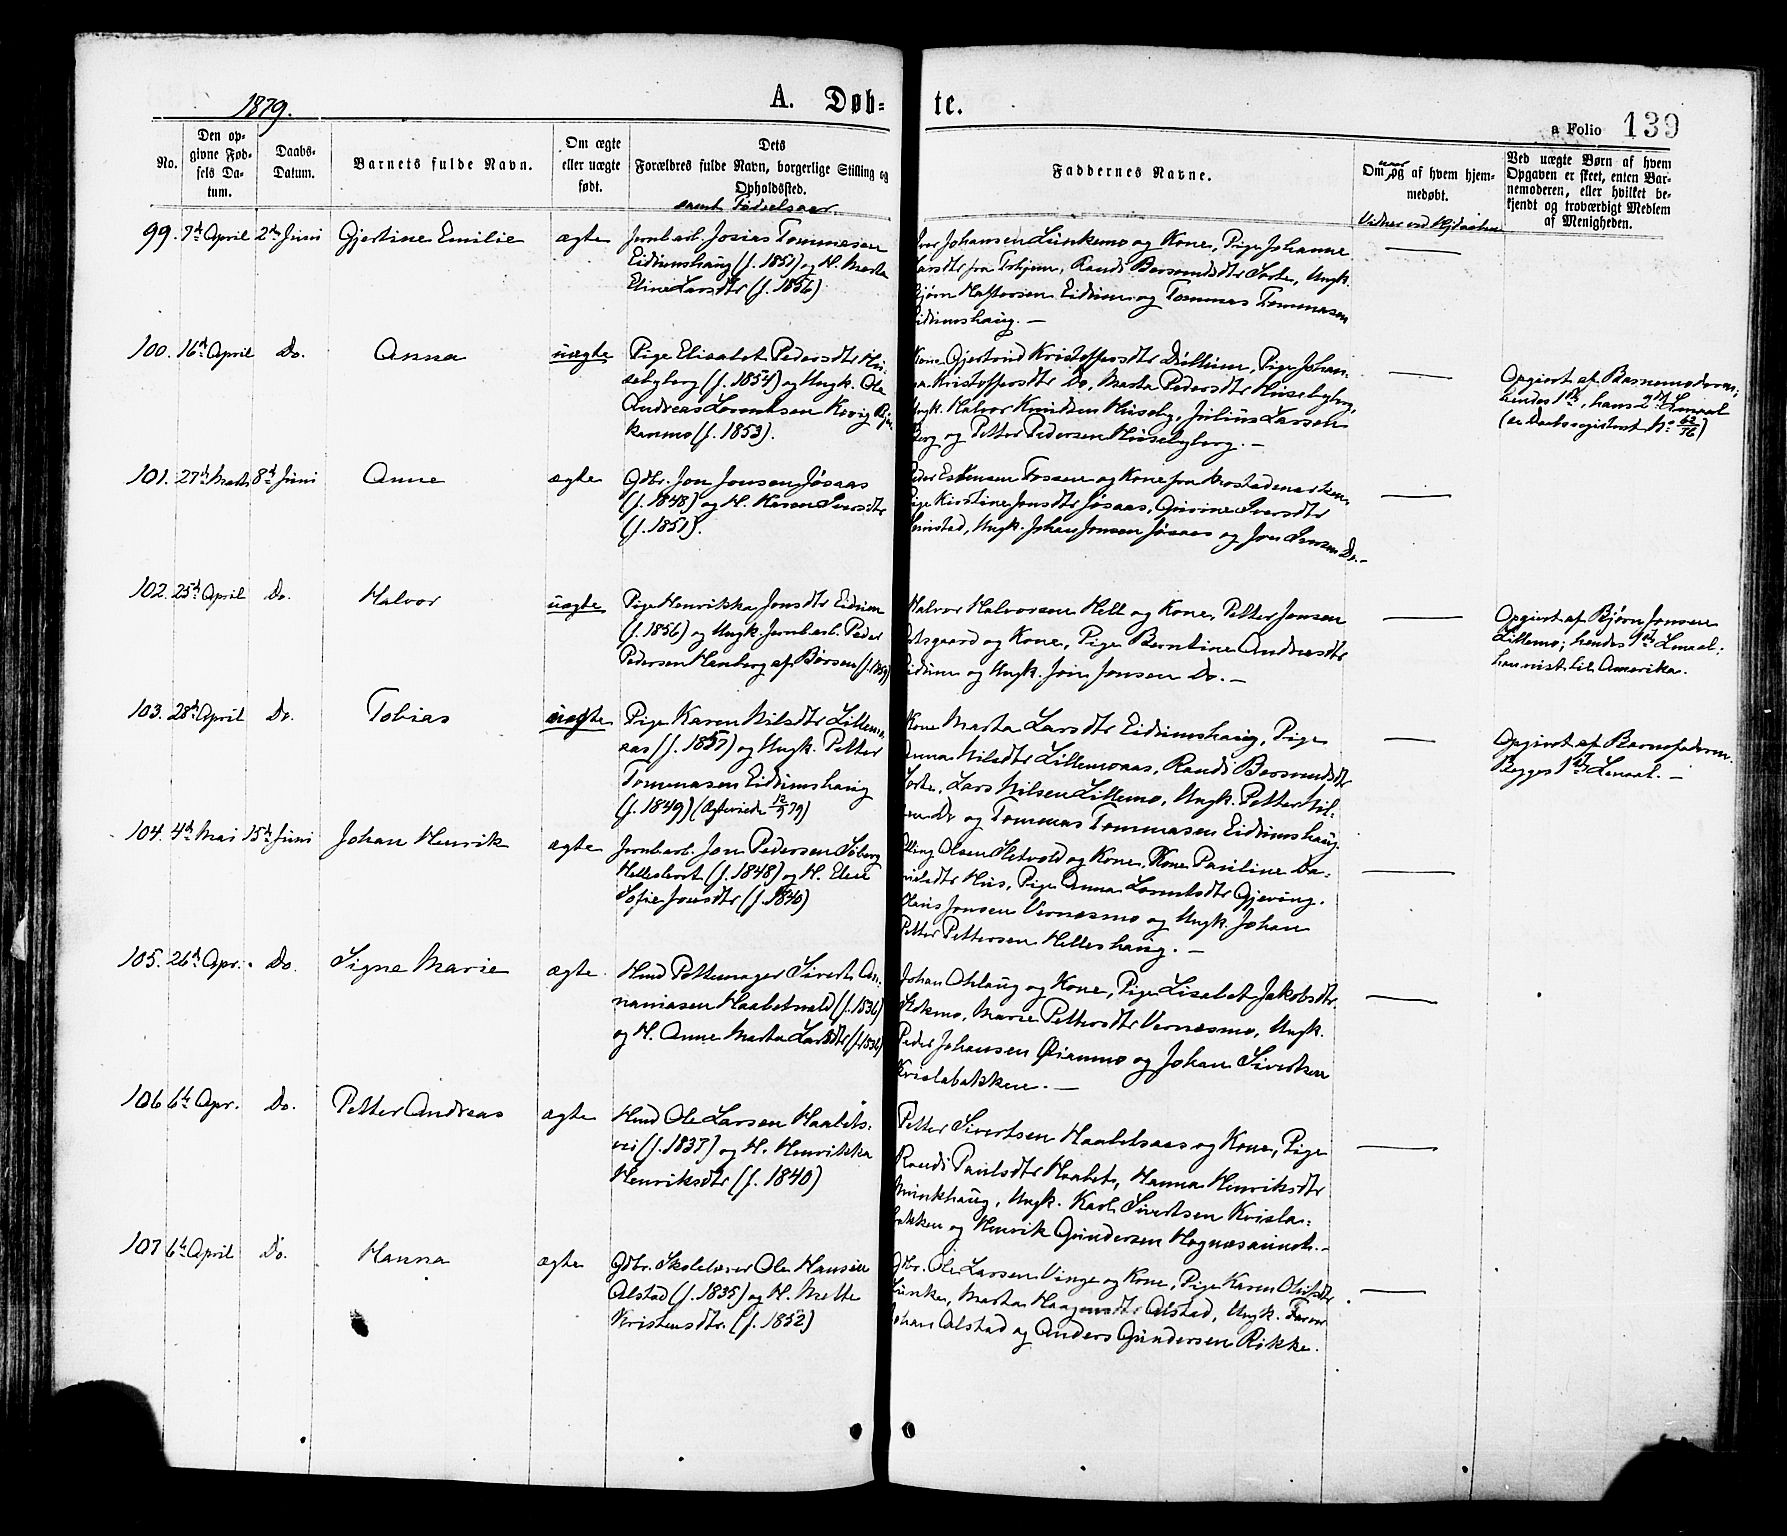 1879.
A. Døb-
te.
a Folio 139
No.
Den op-
givne Fød-
sels Da-
tum.
Daabs-
Datum.
Barnets fulde Navn.
Om ægte
eller uægte
født.
Dets
Forældres fulde Navn, borgerlige Stilling og
Opholdssted.
samt Fødselsaar.
Faddernes Navne.
Om og af hvem hjem-
naar
medøbt.
Ved uægte Børn af hvem
Opgaven er skeet, enten Bar-
nemoderen, eller hvilket be-
kjendt og troværdigt Medlem
af Menigheden.
99. 7d April 2den Juni Gjertine Emilie ægte Jernbarb. Josias Tommasen
Eidumshaug (f. 1851) og H. Marta
Eline Larsdtr (f. 1856)
Johansen Lunkemo og Kone, Pige Johanne
Larsdtr fra Trhjem, Randi Bersvendsdtr Sorte, Ungk.
Bjørn Haftorsen Eidum og Tommas Tommasen
Eidumshaug. —
100. 16d April Do. Anna uægte Pige Elisabet Pedersdtr Hu-
sebyberg (f. 1854) og Ungk. Ole
Andreas Lorentsen
kanmo (f. 1853).
Kone Gjertrud Kristoffersdtr Dullum, Pige Johan-
na Kristoffersdtr Do, Marta Pedersdtr Husebyberg,
Ungk. Halvor Knudsen Huseby, Julius Larsen
Berg og Petter Pedersen Husebyberg. —
Opgivet af Barnemoderen;
hendes 1ste, hans 2det Lemaal
(se Daabsregistret No 62/76)
101. 27d Marts 8d Juni Anne ægte Gdbr. Jon Jonsen Jøsaas
(f. 1848) og H. Karen Iversdtr
(f. 1851).
Peder Estensen Fossen og Kone fra Mostadmarken,
Pige Kirstine Jonsdtr Jøsaas, Gurine Iversdtr
Ungk. Johan Jonsen Jøsaas og Jon Iversen Do. —
102. 25d April Do. Halvor uægte Pige Henrikka Jonsdtr Eidum
(f. 1856) og Ungk. Jernbarb. Peder
Pedersen Henberg af Børsen (f. 1859)
Halvor Halvorsen Hell og Kone, Petter Jonsen
og Kone, Pige Berntine Andreasdtr
Eidum og Ungk. Jon Jonsen Do. —
Opgivet af Bjørn Jonsen
Lillemo; hendes 1ste Lemaal;
han reist til Amerika.
103. 28d April Do. Tobias uægte Pige Karen Nilsdtr Lillemo-
aas (f. 1857) og Ungk. Petter
Tommasen Eidumshaug
(f. 1849) (Ægteviede 12/7 79)
Kone Marta Larsdtr Eidumshaug, Pige
Anna Nilsdtr Lillemoaas, Randi Bersvendsdtr
Sorte, Lars Nilsen Lillemo, Ungk. Petter Nil-
sen Do og Tommas Tommasen Eidumshaug.
Opgivet af Barnefaderen.
Begges 1ste Lemaal. —
104. 4d Mai 15d Juni Johan Henrik ægte Jernbarb. Jon Pedersen Søberg
(f. 1848) og H. Elen
Sofie Jonsdtr (f. 1840)
Elling Olsen Sletvold og Kone, Kone Pauline Da-
nielsdtr Hus, Pige Anna Lorntsdtr Gjeving,
Olaus Jonsen Vernesmo og Ungk. Johan
Petter Pettersen Helleshaug. —
105. 26d Apr. Do. Signe Marie ægte. Hmd Pottemager Sivert An-
naniasen Haabetvald (f. 1836)
og H. Anne Marta Larsdtr (f. 1836)
Johan Øhlaug og Kone, Pige Lisabet Jakobsdtr
Stokmo, Marie Pettersdtr Vernesmo, Ungk.
Peder Johansen Øianmo og Johan Sivertsen
Kvislabakken. —
106 6te Apr. Do. Petter Andreas ægte Hmd Ole Larsen Haabets-
vei (f. 1837) og H. Henrikka
Henriksdtr (f. 1840)
Petter Sivertsen Haabetsaas og Kone, Pige
Randi Paulsdtr Haabet, Hanna Henriksdtr
Munkhaug, Ungk. Karl Sivertsen Kvisla-
bakken og Henrik Gundersen —
107 6te April Do. Hanna ægte Gdbr. Skolelærer Ole Hansen
Alstad (f. 1835) og H. Mette
Kristensdtr. (f. 1852)
Gdbr. Ole Larsen Vinge og Kone, Pige Karen Olufsdtr
Lunke, Marta Haagensdtr Alstad, Ungk. Farver
Johan Alstad og Anders Gundersen Røkke.